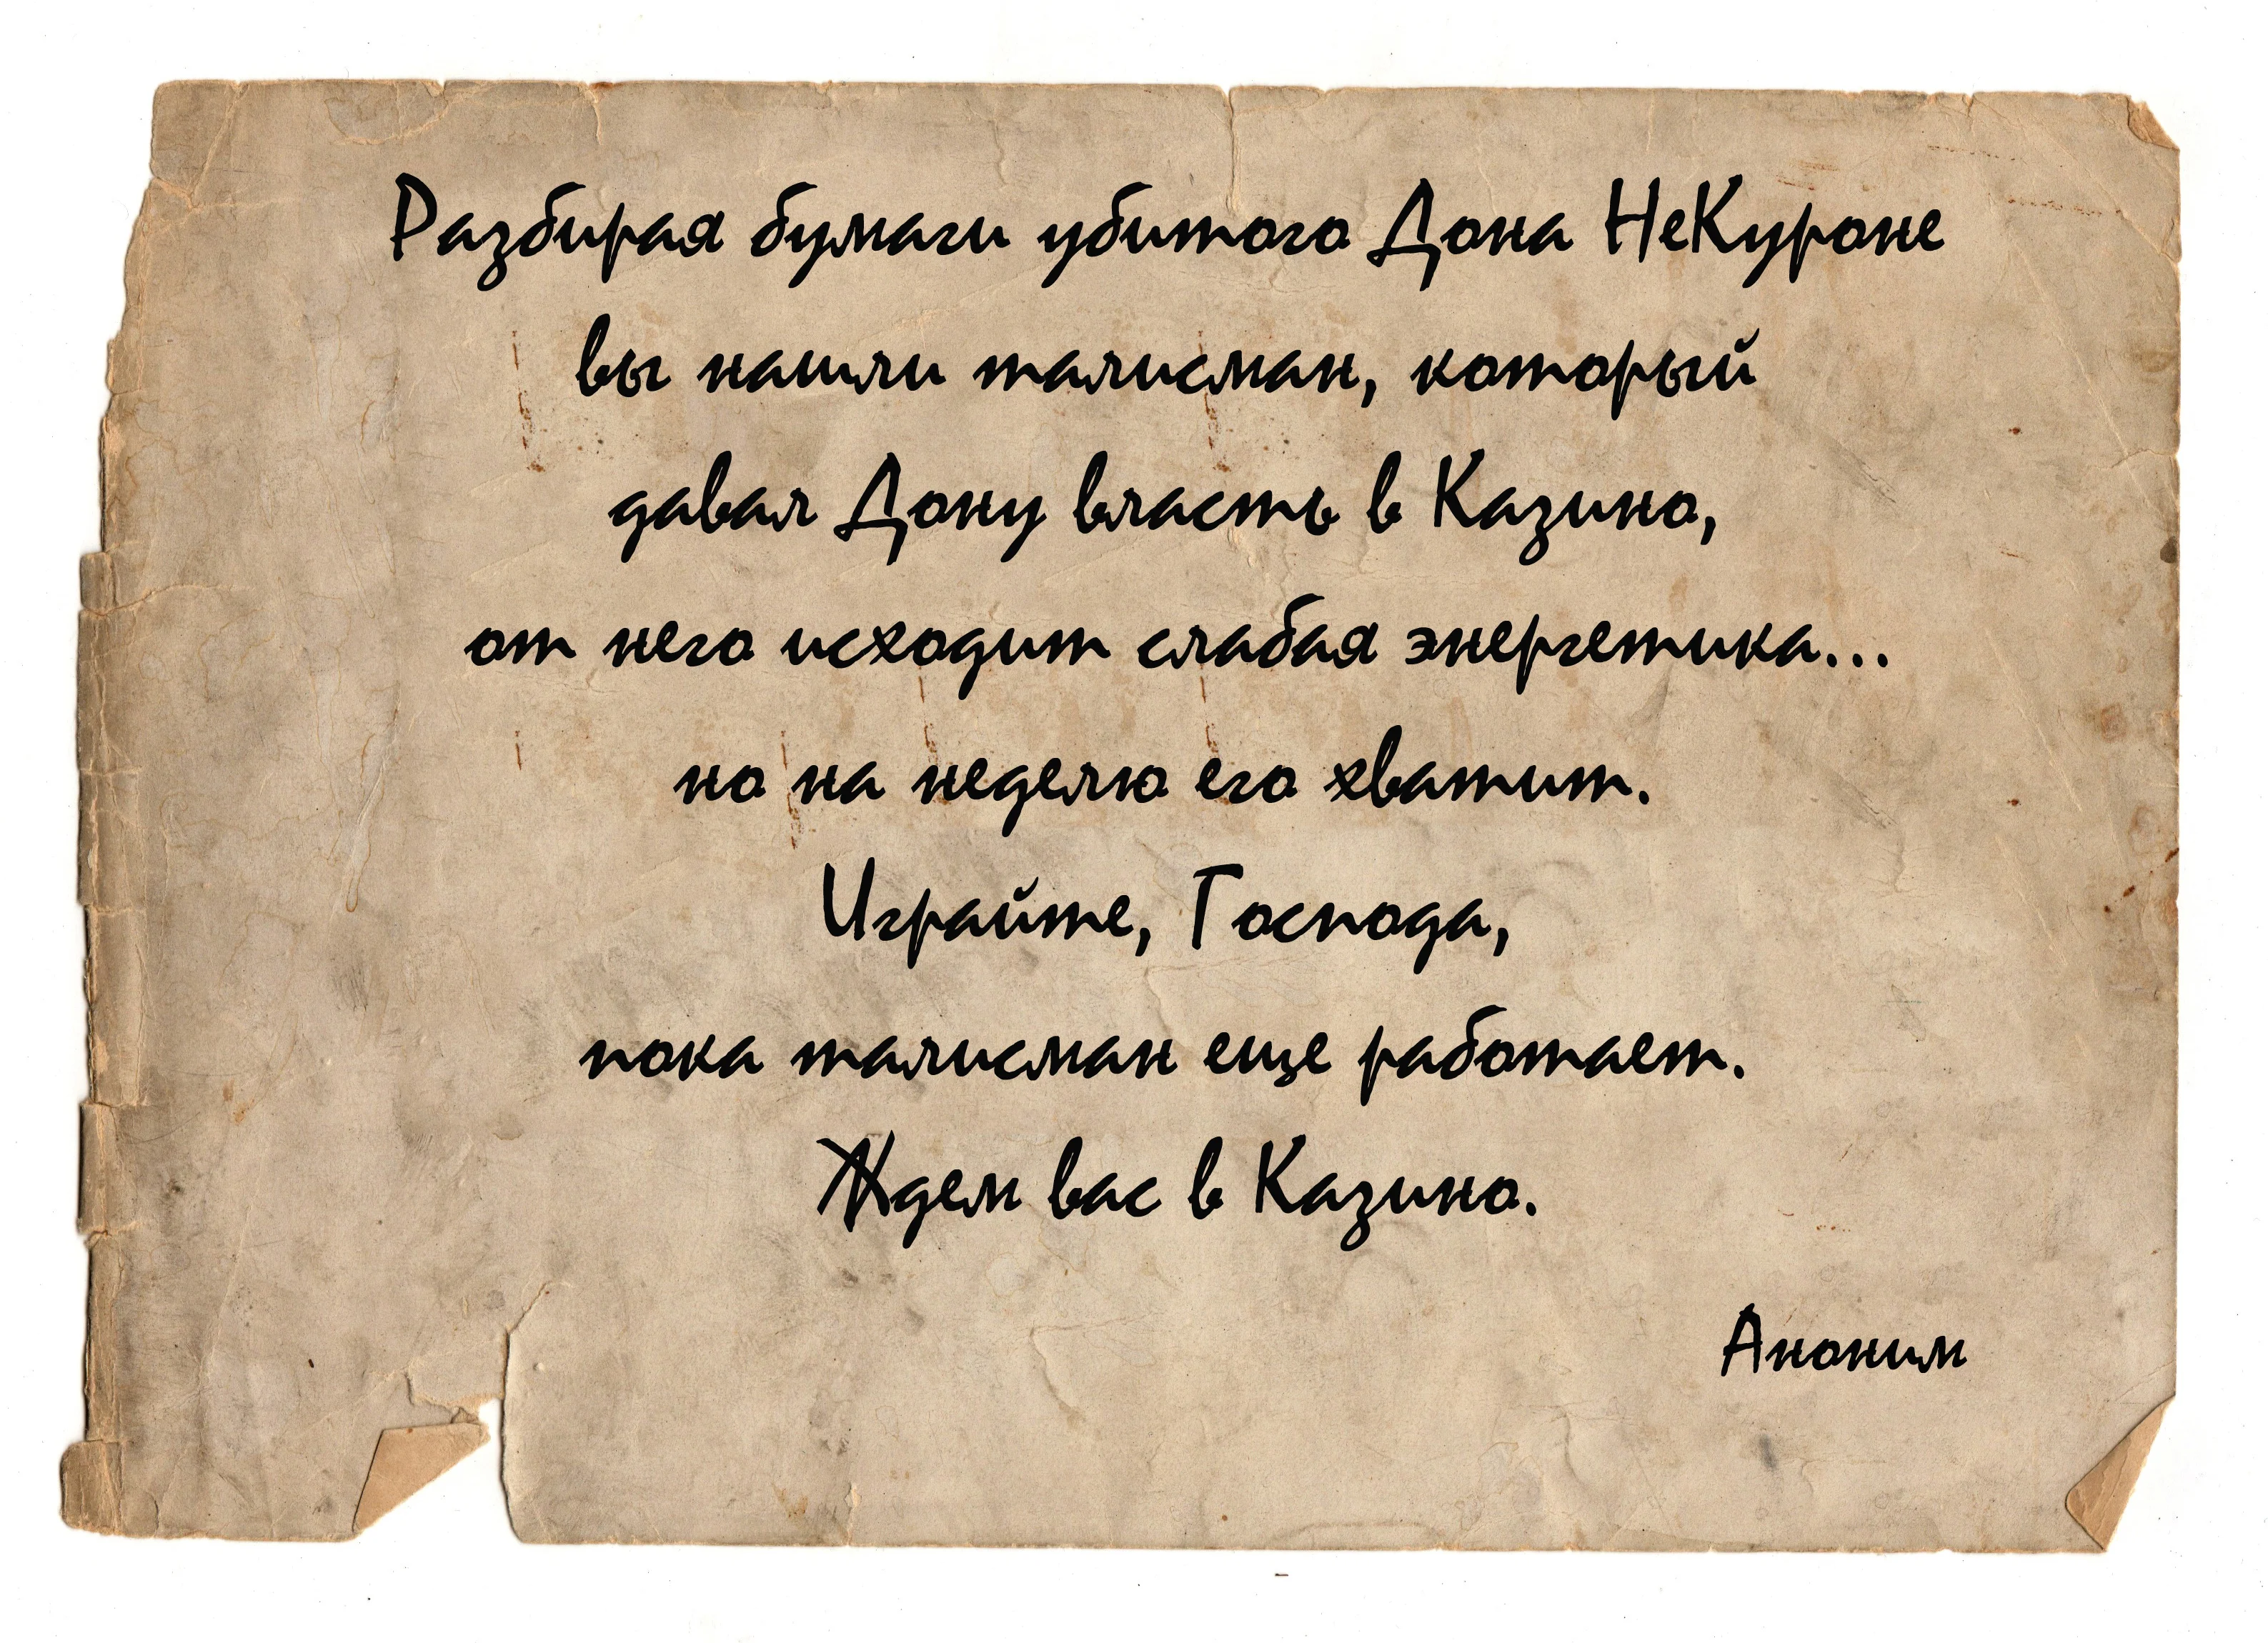 Разбирая бумаги убитого Дона НеКуроне
вы нашли талисман, который
давал Дону власть в Казино,
от него исходит слабая энергетика...
но на неделю его хватит.
Играйте, Господа,
пока талисман еще работает.
Ждем вас в Казино.
Аноним